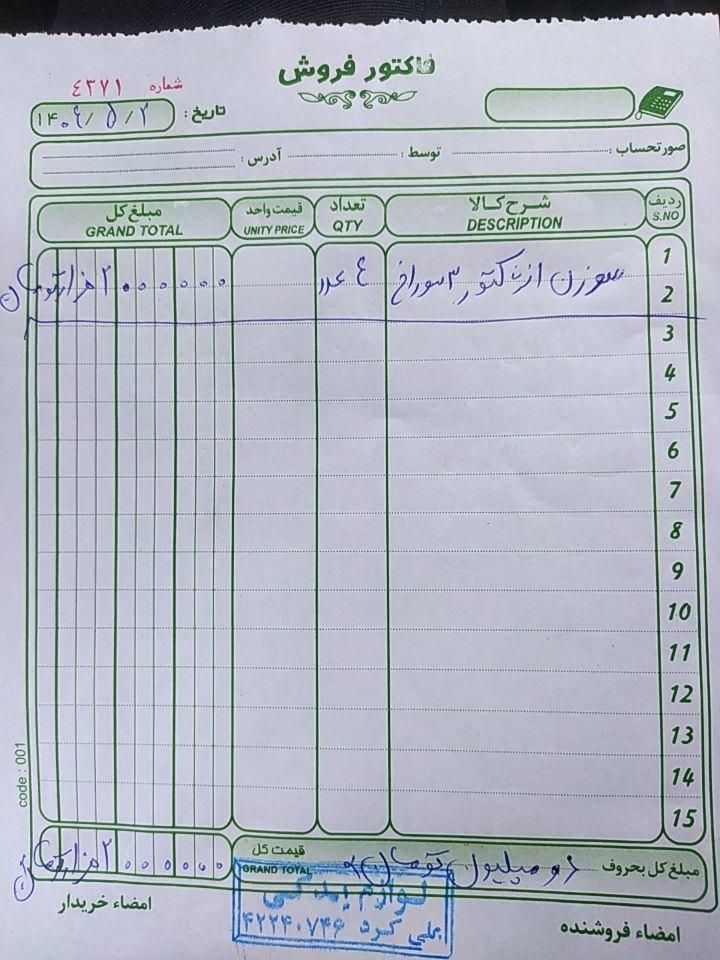 فاکتور فروش
شماره ٤٣٧١
تاریخ : ١۴۰٤/۵/۲
صورتحساب : توسط : آدرس :
ردیف شرح کالا تعداد قیمت واحد مبلغ کل
S.NO DESCRIPTION QTY UNITY PRICE GRAND TOTAL
1
2 سوزن انژکتور ۳ سوراخ ٤ عدد ۲۰۰۰۰۰۰ هزار تومان
3
4
5
6
7
8
9
10
11
12
13
14
15
code : 001
مبلغ کل بحروف دو میلیون تومان قیمت کل ۲۰۰۰۰۰۰ هزار تومان
GRAND TOTAL
لوازم یدکی
علی کرد ۴۲۲۴۰۷۴۶
امضاء فروشنده امضاء خریدار